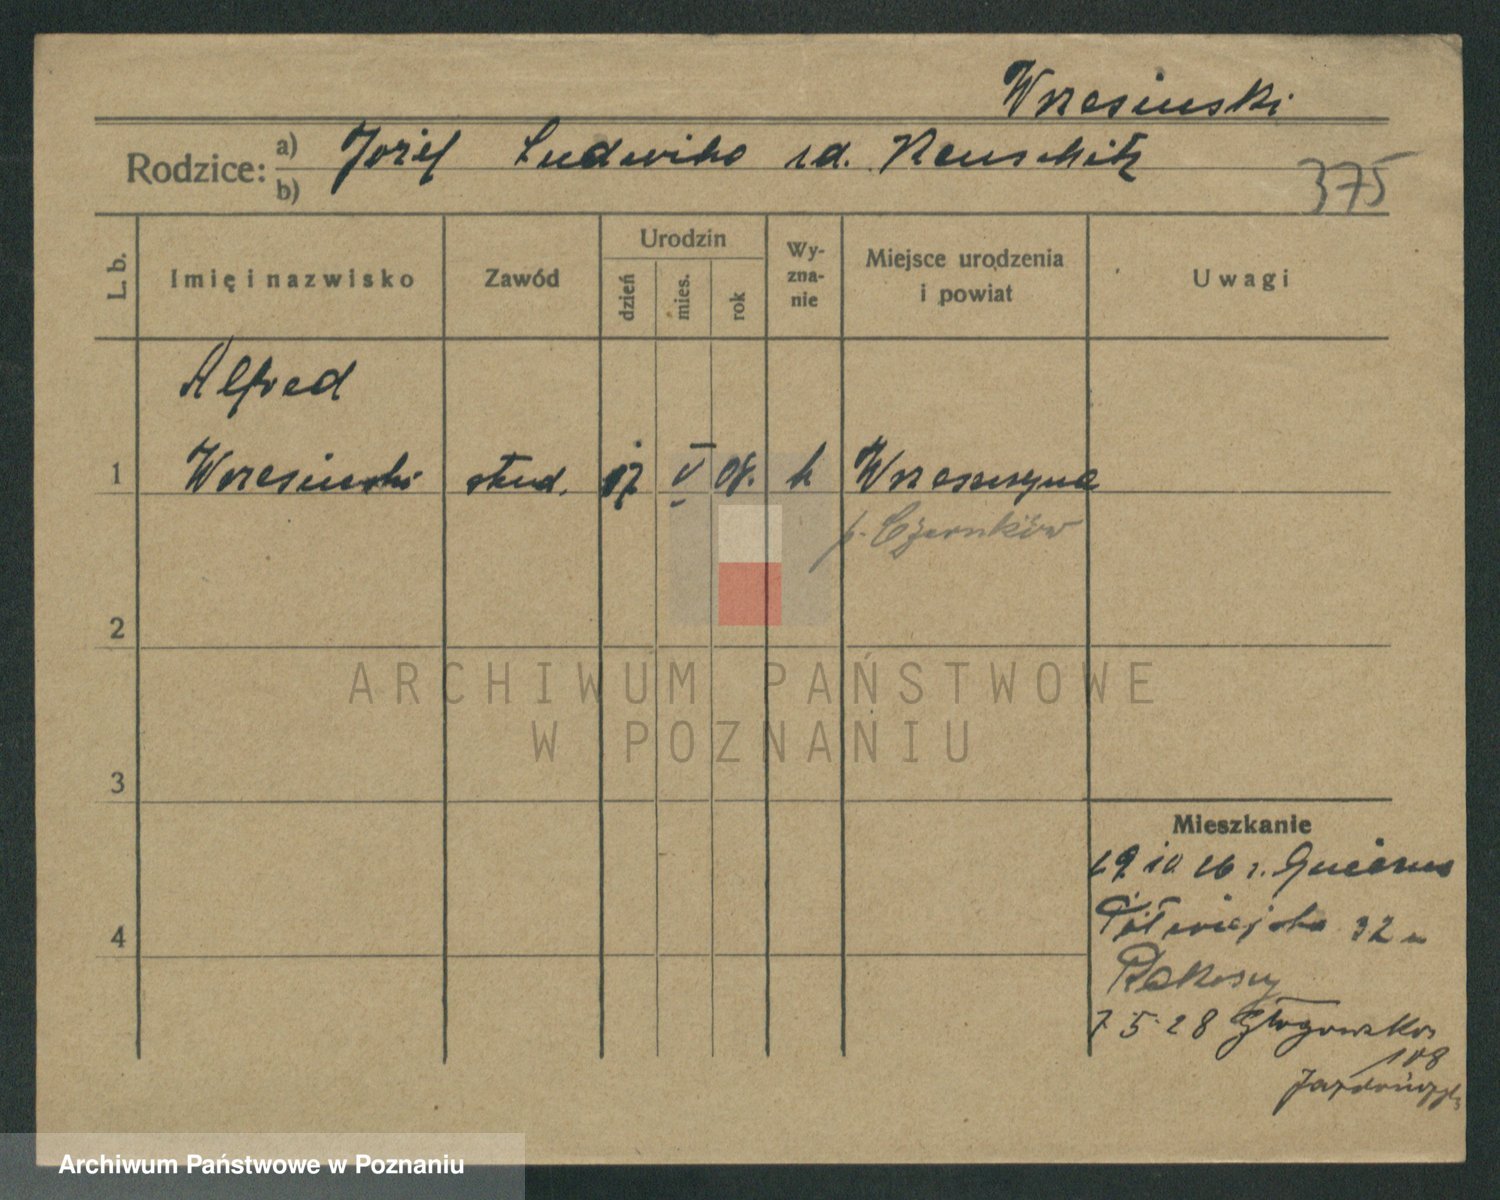 Wrzesinski
Rodzice: a) Józef Ludwika zd. Reuschitz
b)
375
L. b. Imię i nazwisko Zawód Urodzin dzień mies. rok Wy-zna-nie Miejsce urodzenia i powiat Uwagi
Alfred
1 Wrzesinski stud. 17 V 08. k Wrzeszczyna
p. Czarnków
2
ARCHIWUM PAŃSTWOWE
W POZNANIU
3
Mieszkanie
10 26 r. Gniezno
4 Półwiejska 32
Rakoscy
7 5 28 Głogowska
108
Archiwum Państwowe w Poznaniu